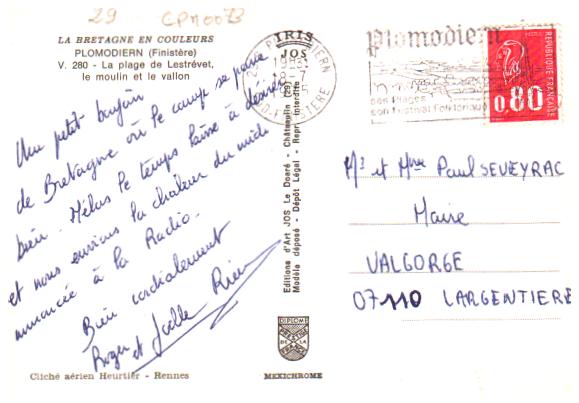 29 CPM0073
LA BRETAGNE EN COULEURS
PLOMODIERN (Finistère)
V. 280 - La plage de Lestrévet,
le moulin et le vallon
Un petit bonjour
de Bretagne où le camp se passe
bien. Hélas le temps laisse à désirer
et nous envions la chaleur du midi
annoncée à la Radio.
Bien cordialement
Roger et Joëlle
Cliché aérien Heurtier - Rennes
IRIS
JOS
Editions d'Art JOS Le Doaré - Châteaulin (29)
Modèle déposé - Dépôt Légal - Repr. Interdite
DIPLOME
PRESTIGE
DE LA
FRANCE
MEXICHROME
PLOMODIERN
18-7
FINISTERE
Plomodiern
ses Plages
son Festival Folklorique
0,80
REPUBLIQUE FRANÇAISE
Mr et Mme Paul SEVEYRAC
Maire
VALGORGE
07110 LARGENTIERE